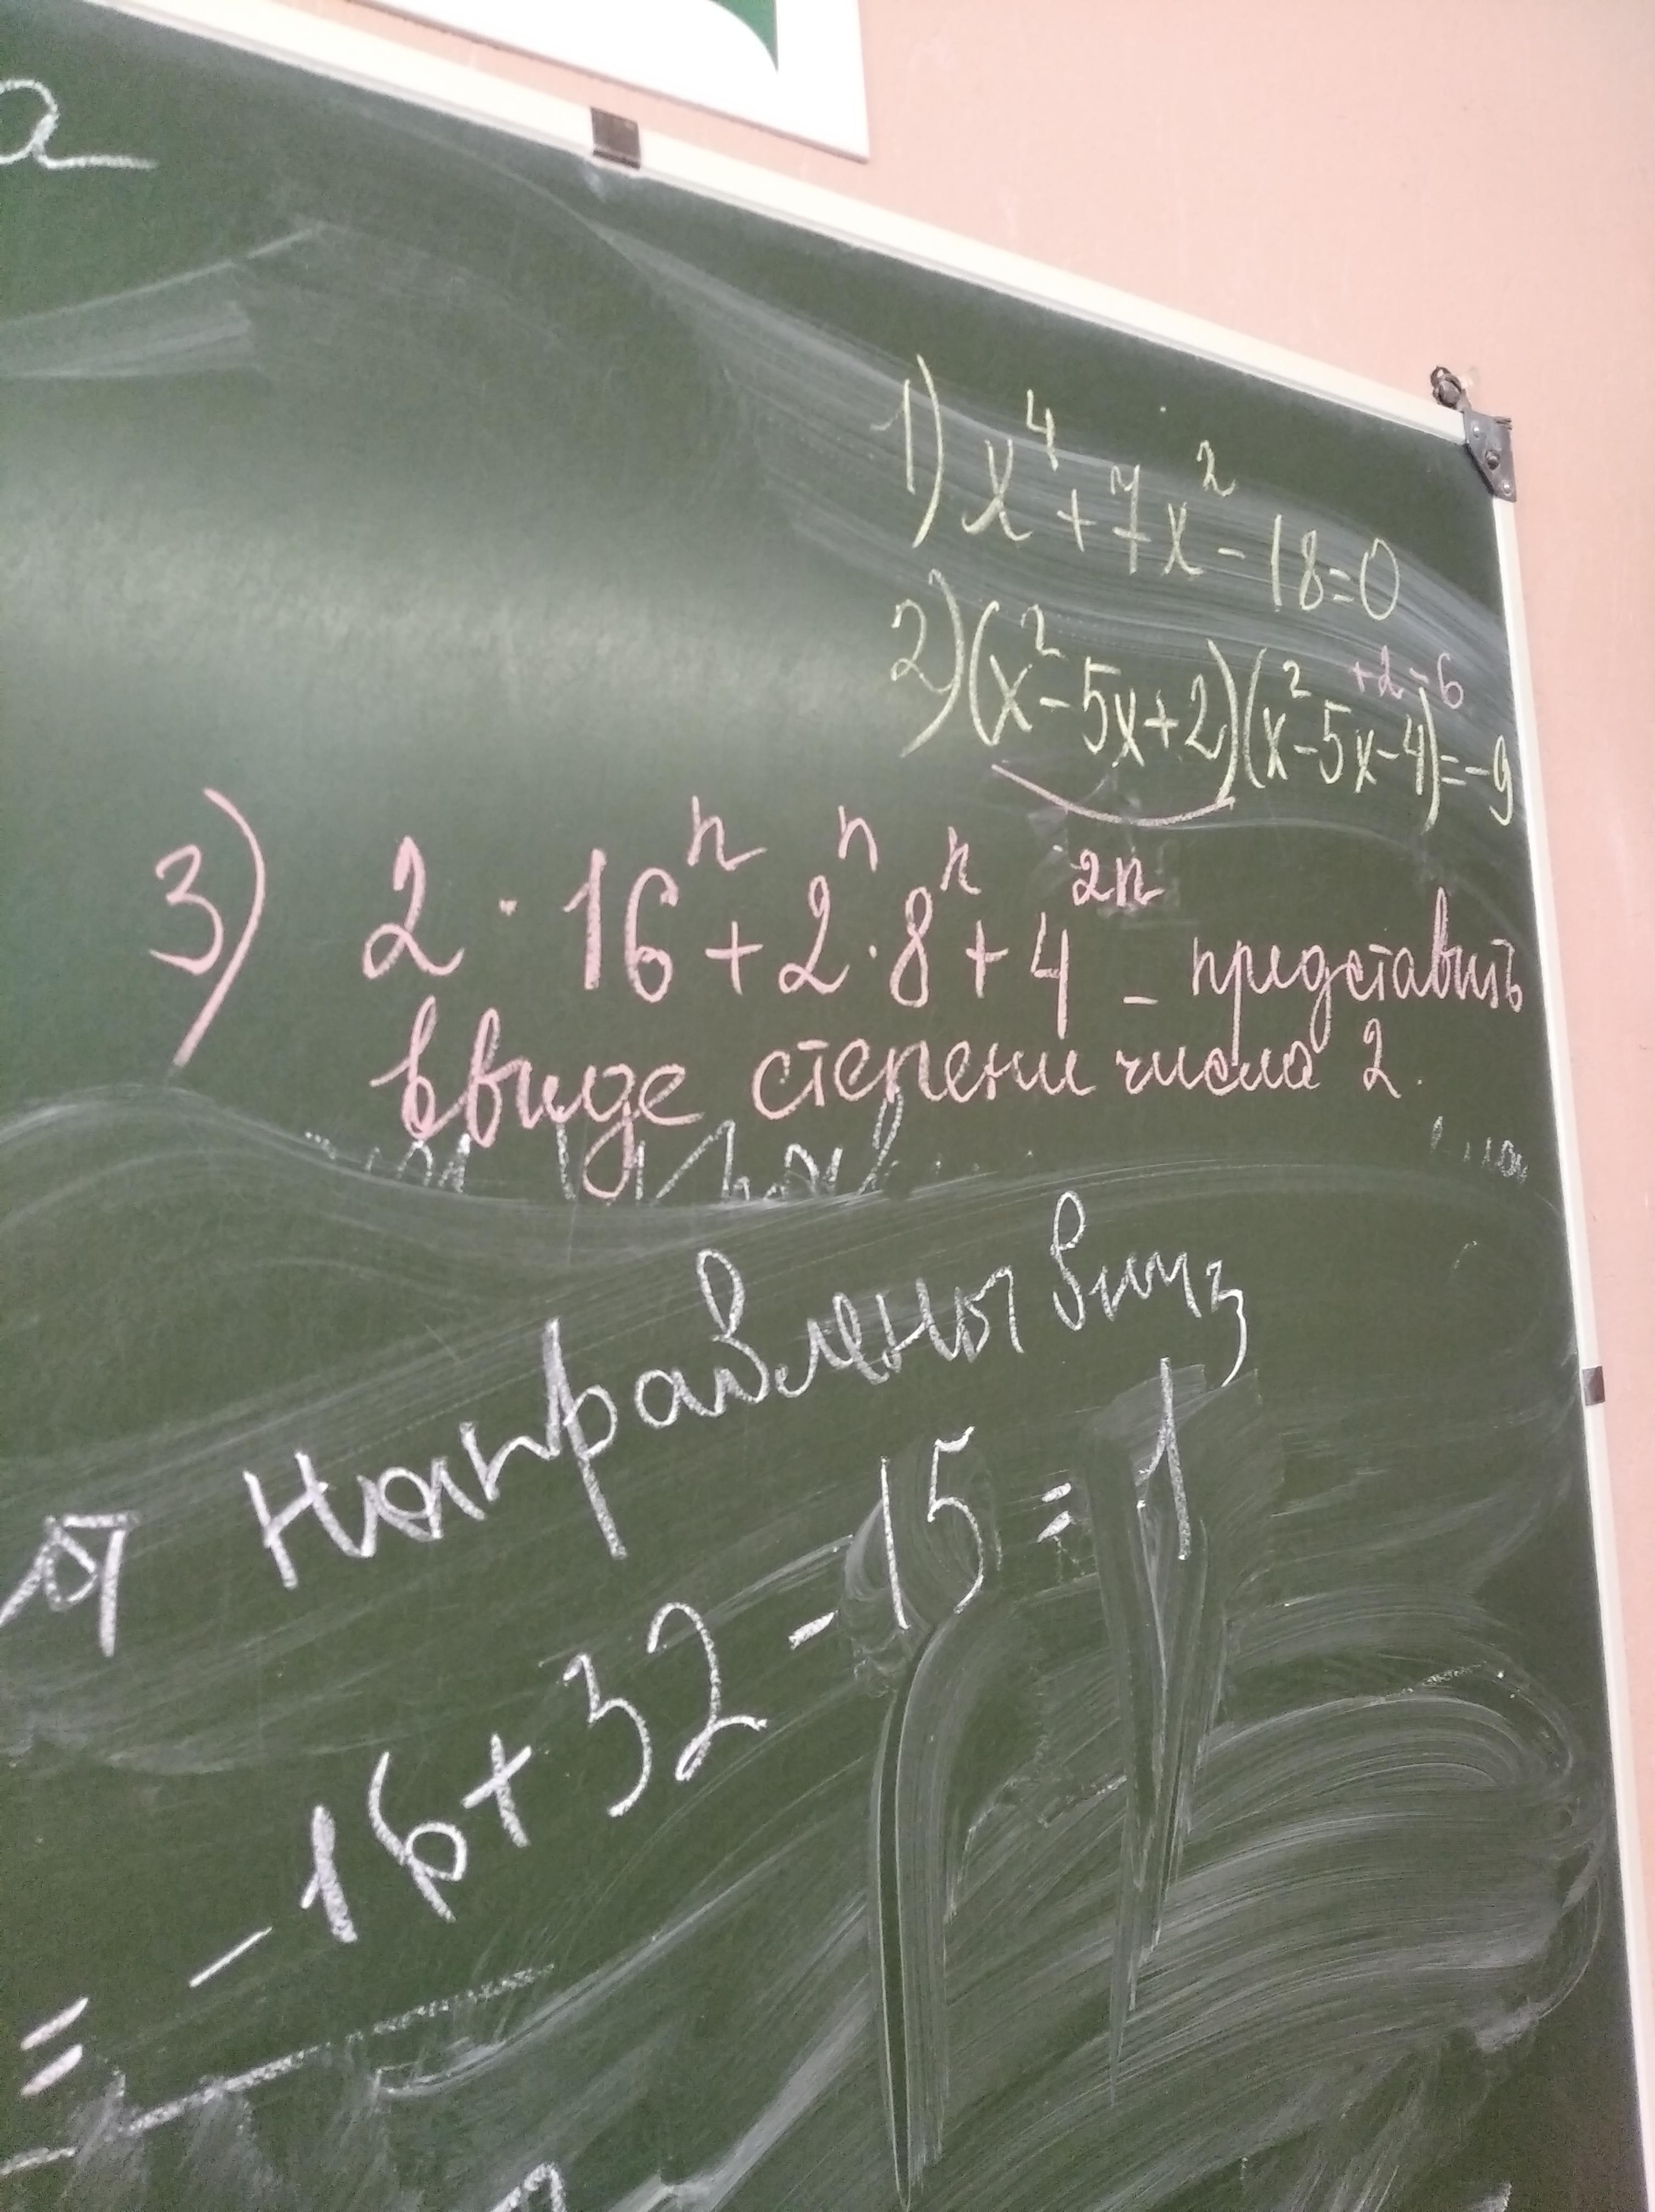 а
1) x⁴ + 7x² - 18 = 0
+2-6
2) (x² - 5x + 2)(x² - 5x - 4) = -9
3) 2 · 16ⁿ + 2ⁿ · 8ⁿ + 4²ⁿ - представить
в виде степени числа 2.
направлены вниз
= -16 + 32 - 15 = 1